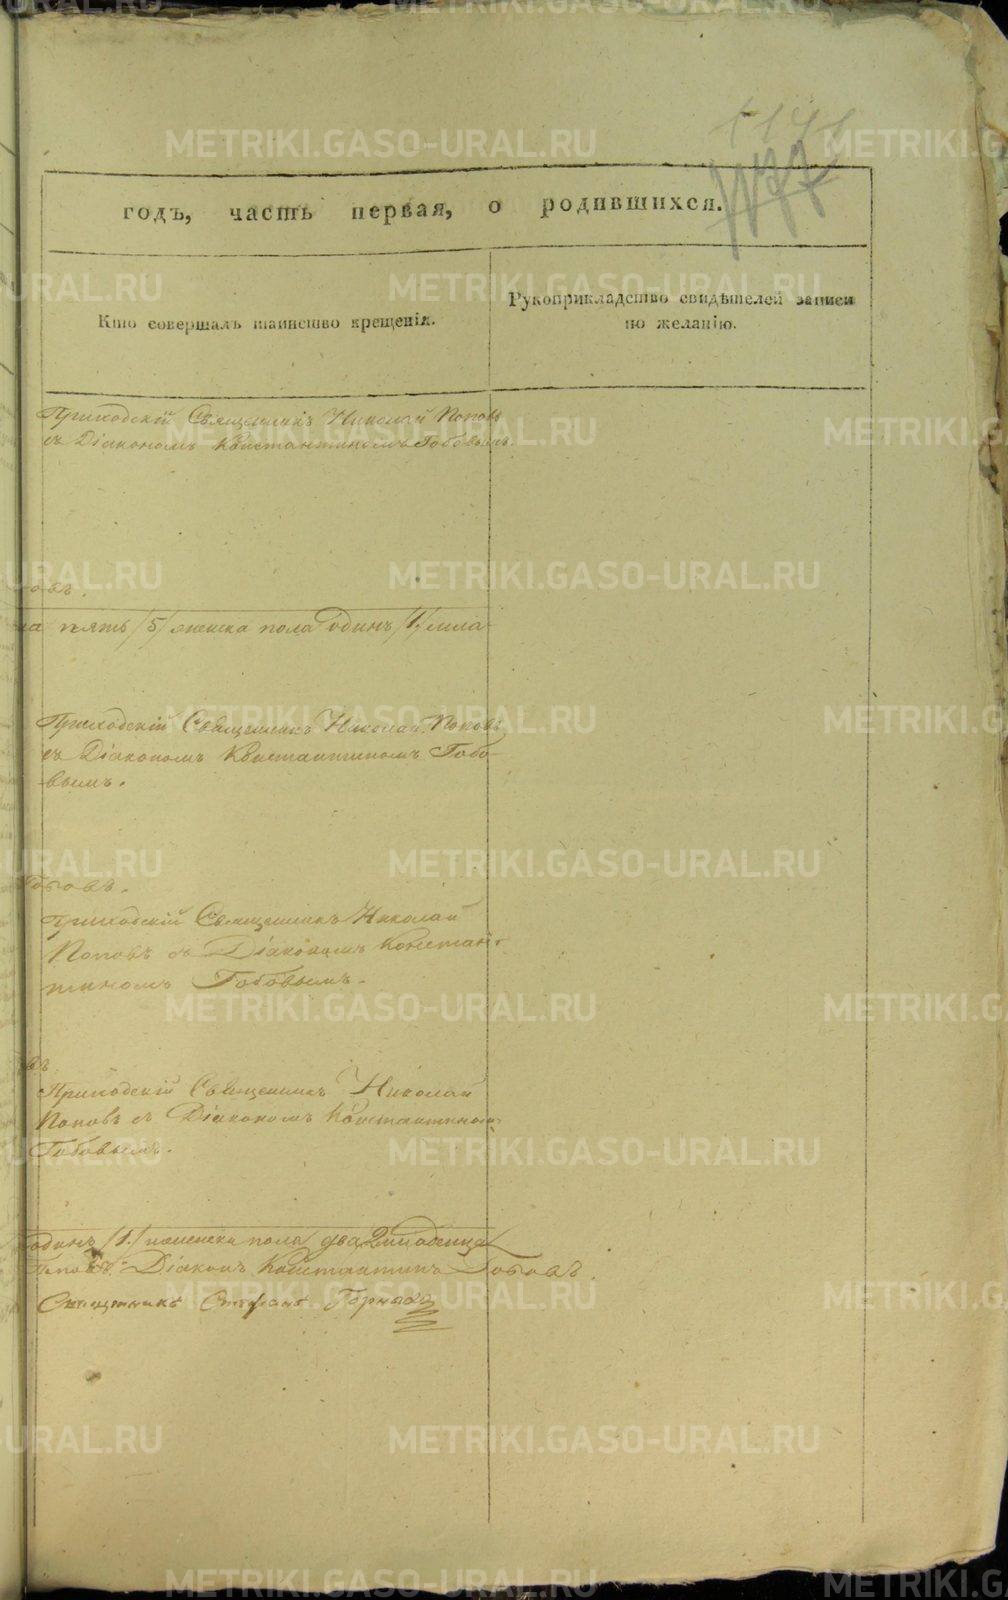 годъ, часть первая, о родившихся.
Кто совершалъ таинство крещенія.
Рукоприкладство свидѣтелей записи
по желанію.
Приходскій Священникъ Николай Поповъ
съ Діакономъ Константиномъ Гобовымъ.
пять /5/ женска пола одинъ /1/ мла-
Приходскій Священникъ Николай Поповъ
съ Діакономъ Константиномъ Гобо-
вымъ.
Гобовъ.
Приходскій Священникъ Николай
Поповъ съ Діакономъ Констан-
тиномъ Гобовымъ.
Приходскій Священникъ Николай
Поповъ съ Діакономъ Константиномъ
Гобовымъ.
одинъ /1/ женска пола два 2 младенца
Поповъ. Діаконъ Константинъ Гобовъ.
Священникъ Стефанъ
METRIKI.GASO-URAL.RU